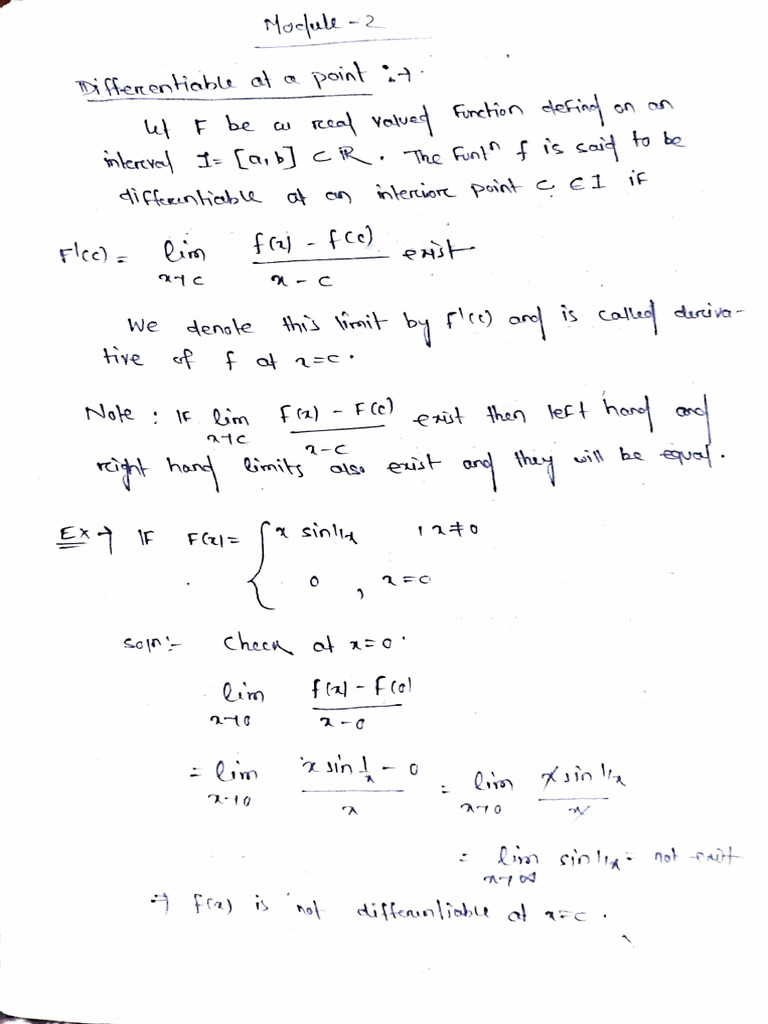 Module - 2
Differentiable at a point :→.
Let F be a real valued Function defined on an
interval I = [a, b] ⊂ ℝ. The Funtⁿ f is said to be
differentiable at an interiore point c ∈ I if
F'(c) = lim x→c (f(x) - f(c))/(x - c) exist
We denote this limit by f'(c) and is called deriva-
tive of f at x=c.
Note : IF lim x→c (F(x) - F(c))/(x-c) exist then left hand and
reight hand limits also exist and they will be equal.
Ex → IF F(x) = { x sin1/x , x≠0
0 , x=0
Soln:- Check at x=0.
lim x→0 (f(x) - F(0))/(x-0)
= lim x→0 (x sin 1/x - 0)/x = lim x→0 (x sin 1/x)/x
= lim x→∞ sin 1/x = not exist
⇒ f(x) is not differentiable at x=c.